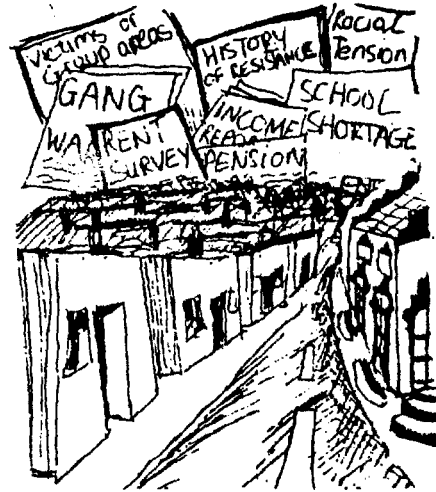 VICTIMS OF
GROUP AREAS
HISTORY
OF RESISTANCE
Racial
Tension
GANG
WA
RENT
SURVEY
INCOME
PENSION
SCHOOL
SHORTAGE